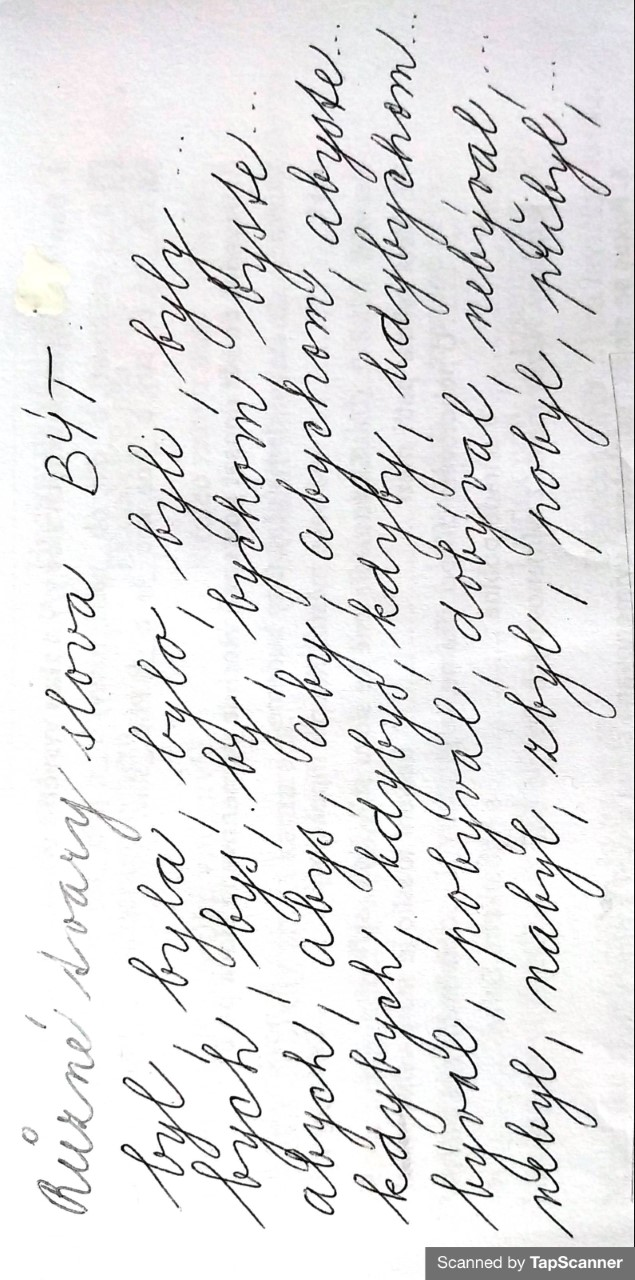 Různé tvary slova BÝT
byl, byla, bylo, byli, byly...
bych, bys, by, bychom, byste...
abych, abys, aby, abychom, abyste...
kdybych, kdybys, kdyby, kdybychom...
býval, pobýval, dobýval, nebýval, ...
nebyl, nabyl, zbyl, pobyl, přibyl, ...
Scanned by TapScanner